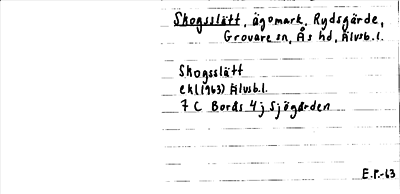 Skogsslätt, ägomark, Rydsgärde,
Grovare sn, Ås hd, Älvsb.l.
Skogsslätt
ekl(1963) Älvsb.l.
7 C Borås 4 j Sjögården
E.P.-63